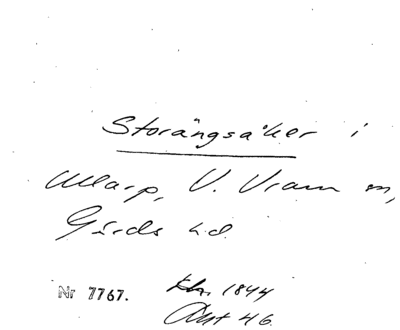 Storängsåker i
Allarp, V. Vram sn,
Gärds hd.
Nr 7767. khr. 1844
Akt 46.